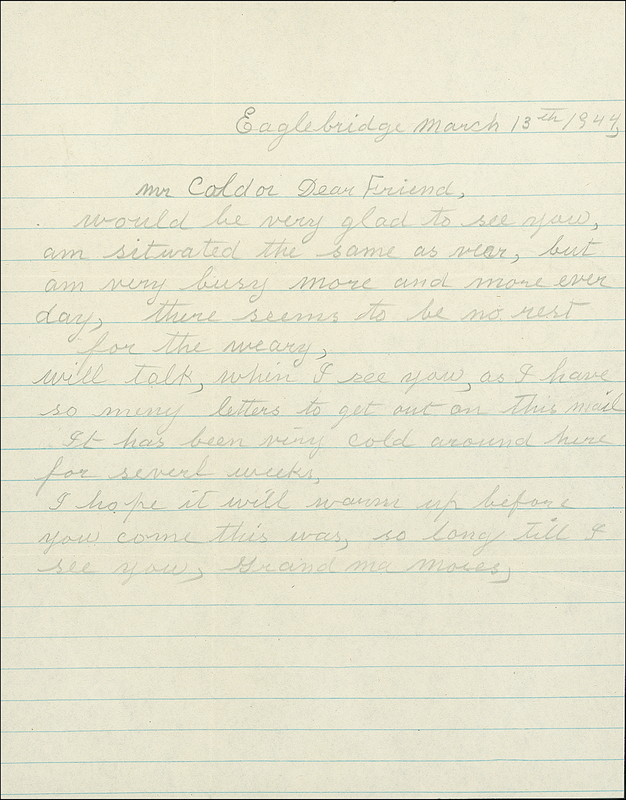 Eaglebridge March 13th 1944,
Mr Caldor Dear Friend,
would be very glad to see you,
am sitwated the same as vear, but
am very busy more and more ever
day, there seems to be no rest
for the weary,
will talk, when I see you, as I have
so meny letters to get out on this mail
It has been viry cold around here
for severl weeks,
I hope it will warm up before
you come this was, so long till I
see you, Grand ma Moses,